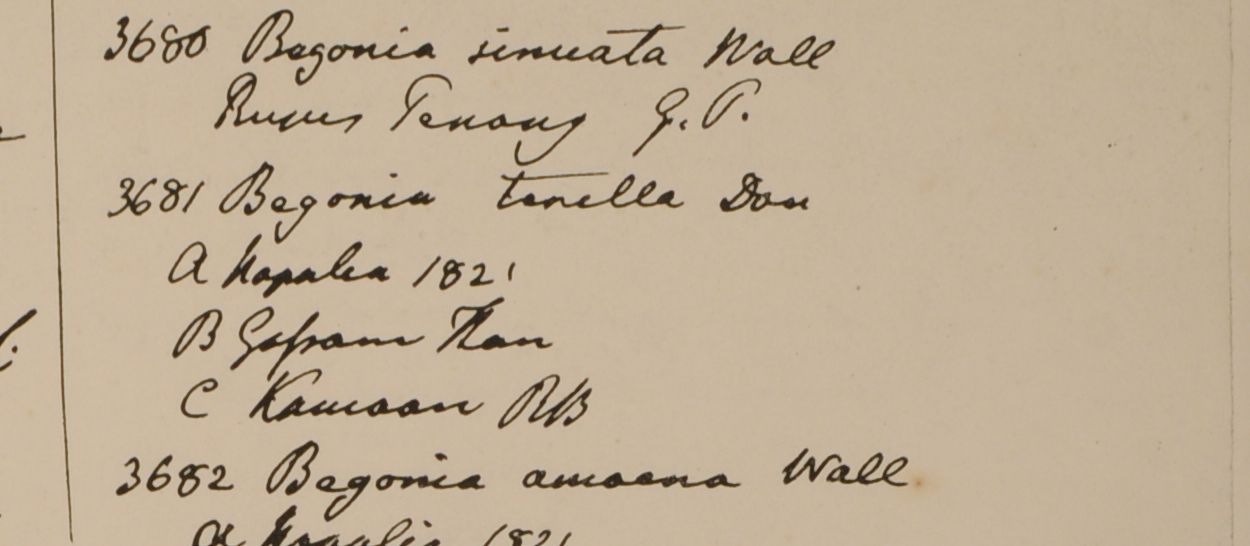 3680 Begonia sinuata Wall
Penang G. P.
3681 Begonia tenella Don
A Napalia 1821
B Gossain Than
C Kamaon RB
3682 Begonia amoena Wall
A Napalia 1821